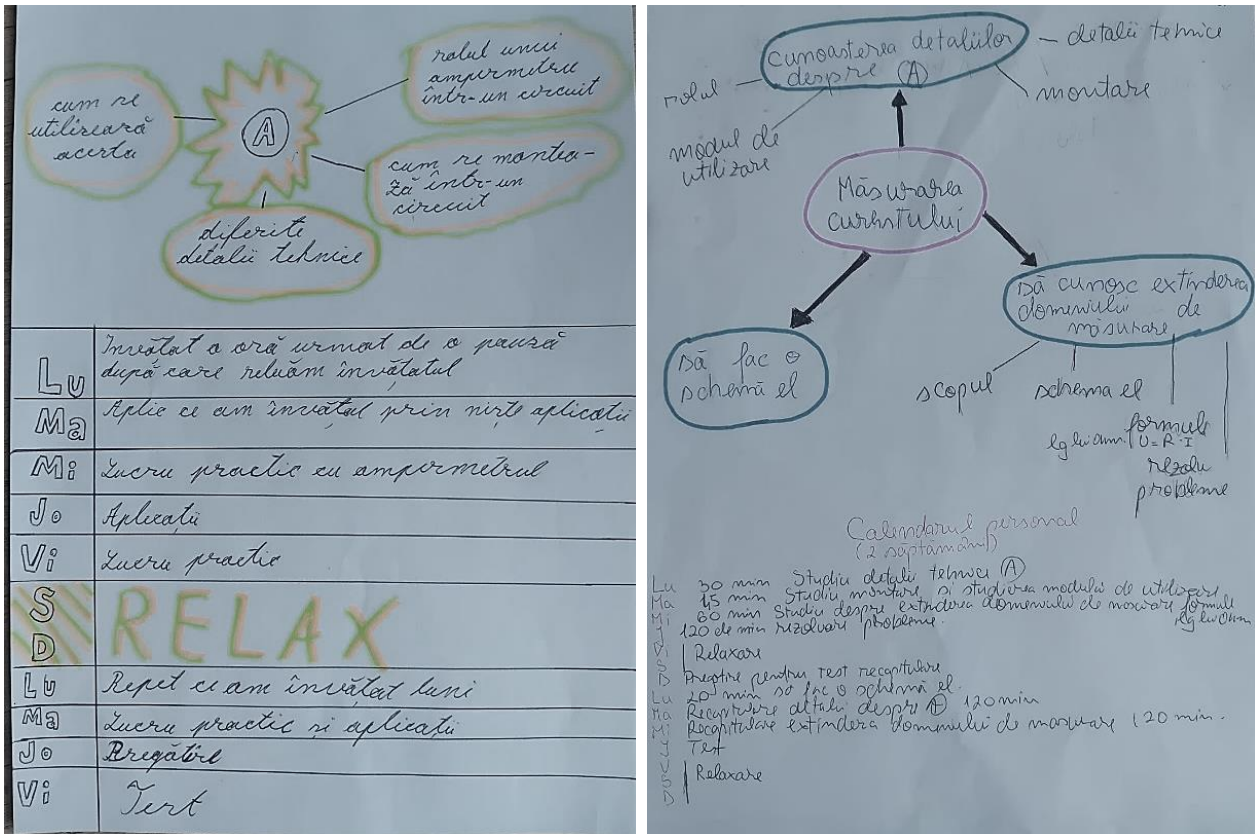 rolul unui
ampermetru
într-un circuit
cum se
utilizează
acesta
A
cum se montea-
ză într-un
circuit
diferite
detalii tehnice
Lu Învățat o oră urmat de o pauză
după care reluăm învățatul
Ma Aplic ce am învățat prin niște aplicații
Mi Lucru practic cu ampermetrul
Jo Aplicații
Vi Lucru practic
S
D RELAX
Lu Repet ce am învățat luni
Ma Lucru practic și aplicații
Jo Pregătire
Vi Test
cunoasterea detaliilor
despre A
detalii tehnice
rolul
montare
modul de
utilizare
Măsurarea
curentului
să cunosc extinderea
domeniului de
măsurare
să fac o
schemă el
scopul
schema el
formule
lg lui Ohm U=R·I
rezolv
probleme
Calendarul personal
(2 săptămâni)
Lu 30 min Studiu detalii tehnice A
Ma 45 min Studiu montare, si studierea modului de utilizare
Mi 60 min Studiu despre extinderea domeniului de masurare formule
lg lui Ohm
J 120 de min rezolvare probleme.
V
S Relaxare
D Pregatire pentru test recapitulare
Lu 20 min să fac o schemă el.
Ma Recapitulare detalii despre A 120 min
Mi Recapitulare extindera domeniului de masurare 120 min.
J Test
V
S Relaxare
D